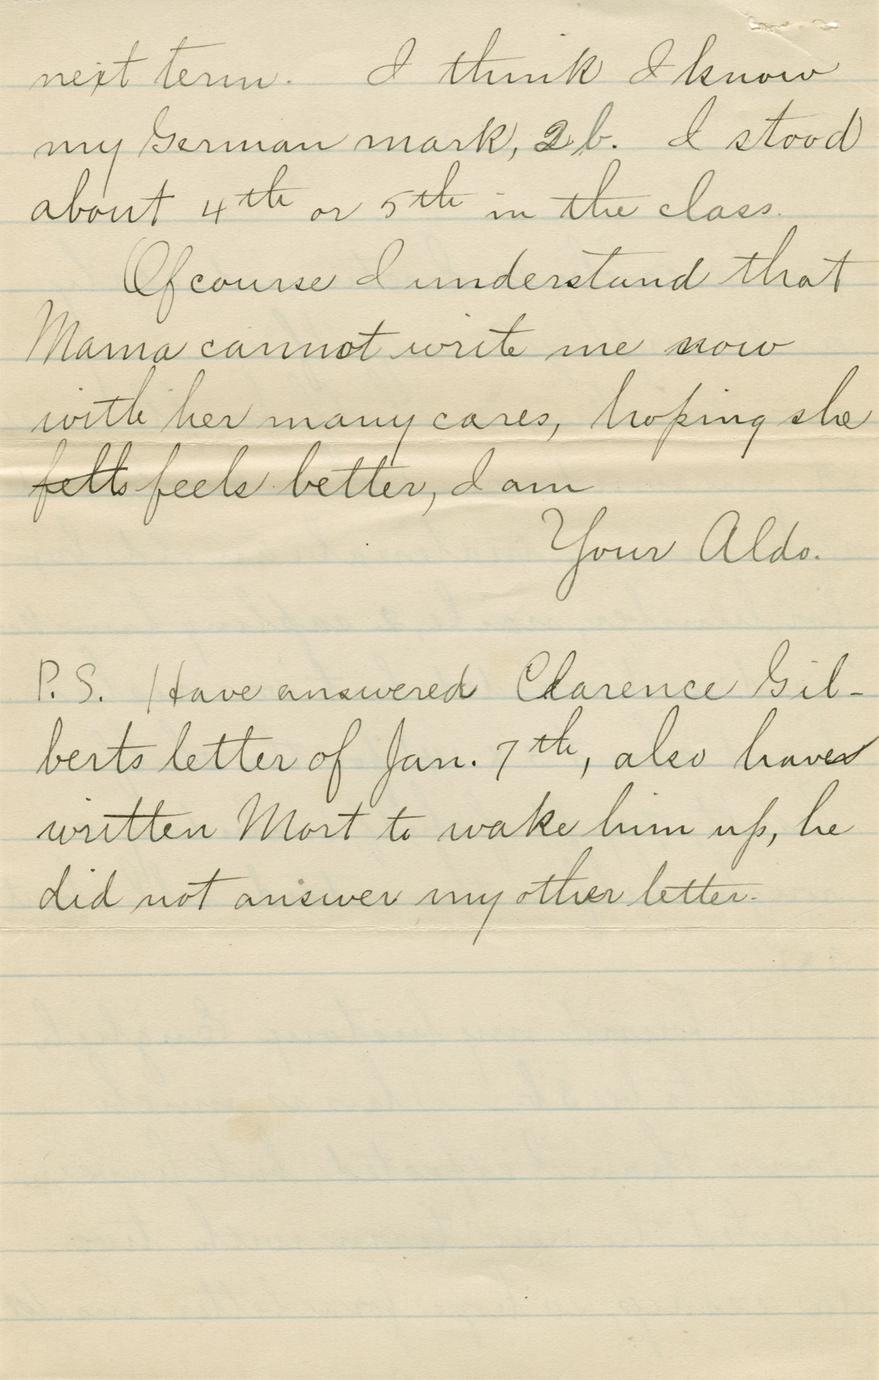 next term. I think I know
my German mark, 2b. I stood
about 4th or 5th in the class.
Ofcourse I understand that
Mama cannot write me now
with her many cares, hoping she
fells feels better, I am
Your Aldo.
P.S. Have answered Clarence Gil-
berts letter of Jan. 7th, also have
written Mort to wake him up, he
did not answer my other letter.